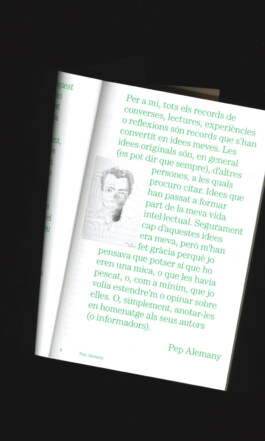 Per a mi, tots els records de
converses, lectures, experiències
o reflexions són records que s'han
convertit en idees meves. Les
idees originals són, en general
(es pot dir que sempre), d'altres
persones, a les quals
procuro citar. Idees que
han passat a formar
part de la meva vida
intel·lectual. Segurament
cap d'aquestes idees
era meva, però m'han
fet gràcia perquè jo
pensava que potser sí que ho
eren una mica, o que les havia
pescat, o, com a mínim, que jo
volia estendre'm o opinar sobre
elles. O, simplement, anotar-les
en homenatge als seus autors
(o informadors).
Pep Alemany
Pep Alemany